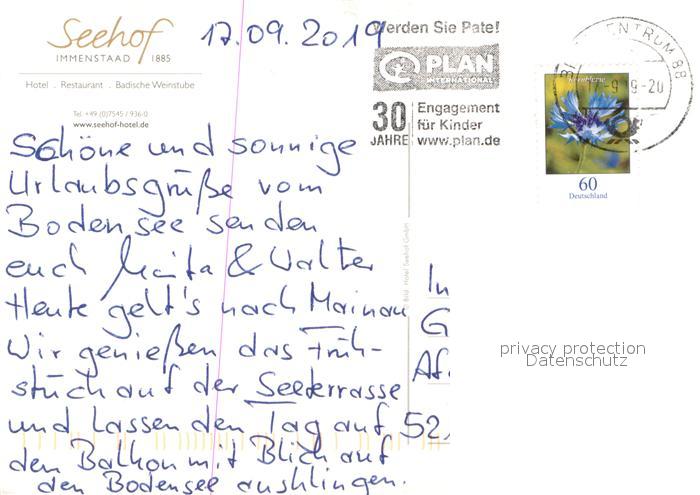 Seehof
IMMENSTAAD 1885
Hotel . Restaurant . Badische Weinstube
Tel. +49 (0)7545 / 936-0
www.seehof-hotel.de
17.09.2019
Werden Sie Pate!
PLAN
INTERNATIONAL
30 JAHRE
Engagement
für Kinder
www.plan.de
ZENTRUM 88
-9 9-20
60
Deutschland
Schöne und sonnige
Urlaubsgrüße vom
Bodensee senden
euch & Walter
Heute geht's nach Mainau
Wir genießen das Früh-
stück auf der Seeterrasse
und lassen den Tag auf
den Balkon mit Blick auf
den Bodensee ausklingen.
In
G
Af.
52
Bild: Hotel Seehof GmbH
privacy protection
Datenschutz